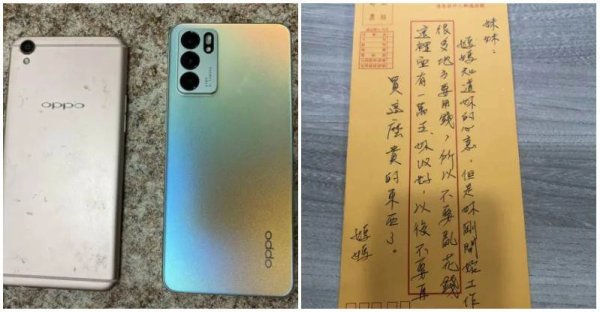 oppo
oppo
妹妹：
媽媽知道妹的心意，但是妹剛開始工作
很多地方要用錢，所以不要亂花錢
這裡面有一萬五，妹收好，以後不要再
買這麼貴的東西了。
媽媽